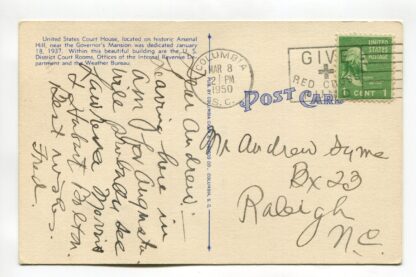 United States Court House, located on historic Arsenal
Hill, near the Governor's Mansion was dedicated January
18, 1937. Within this beautiful building are the U. S.
District Court Rooms, Offices of the Internal Revenue De-
partment and the Weather Bureau.
Dear Andrew:—
Leaving here in
am for Augusta.
will probably see
Lawrence Morris
& Hubert Bolton.
Best wishes.
Fred.
COLUMBIA
MAR 8
PM
1950
S. C.
GIVE
RED
UNITED STATES POSTAGE
1 CENT 1
POST CARD
Mr Andrew Syme
Bx 23
Raleigh
N.C.